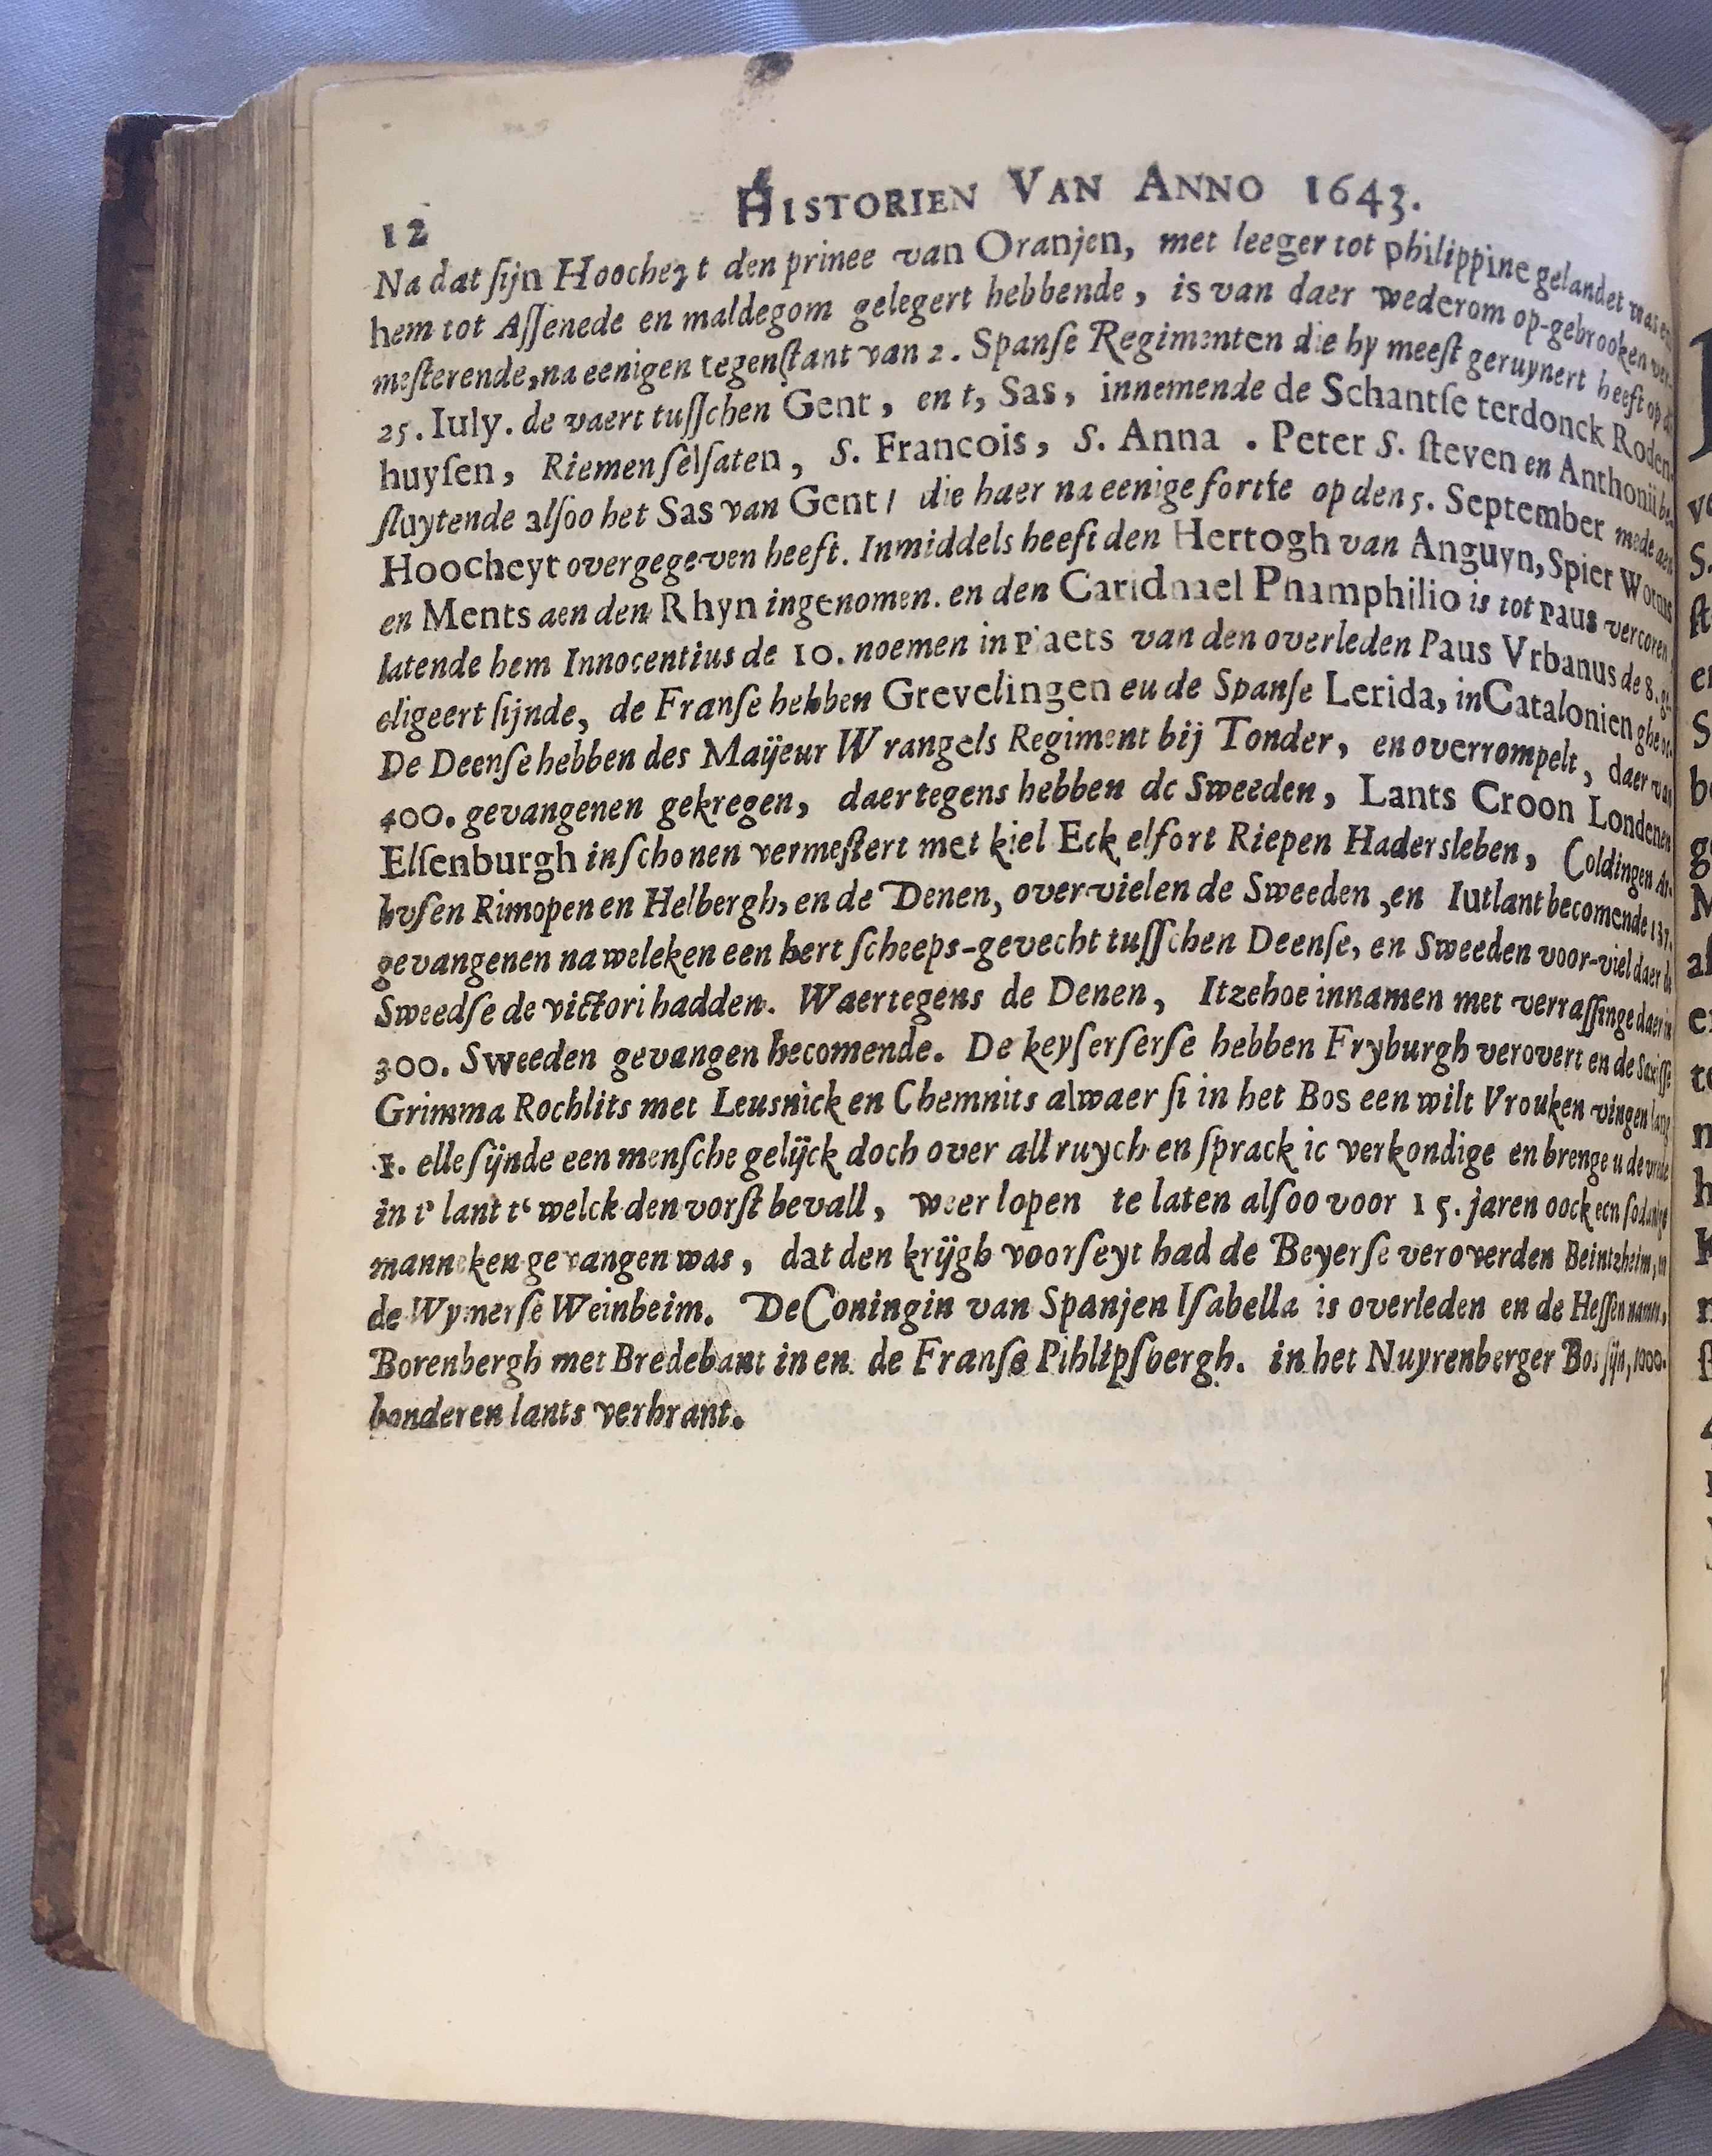 HISTORIEN VAN ANNO 1643.
12
Na dat ſijn Hoocheyt den prinee van Oranjen, met leeger tot philippine gelandet was en
hem tot Aſſenede en maldegom gelegert hebbende, is van daer wederom op-gebrooken ver-
meſterende, na eenigen tegenſtant van 2. Spanſe Regimenten die hy meeſt geruynert heeft op de
25. Iuly. de vaert tuſſchen Gent, en t, Sas, innemende de Schantſe terdonck Roden-
huyſen, Riemenſelſaten, S. Francois, S. Anna . Peter S. ſteven en Anthonij be-
ſluytende alſoo het Sas van Gent / die haer na eenige fortſe op den 5. September mede aen
Hoocheyt overgegeven heeft. Inmiddels heeft den Hertogh van Anguyn, Spier Worms
en Ments aen den Rhyn ingenomen. en den Caridnael Pnamphilio is tot paus vercoren
latende hem Innocentius de 10. noemen in Plaets van den overleden Paus Vrbanus de 8.
eligeert ſijnde, de Franſe hebben Grevelingen eu de Spanſe Lerida, in Catalonien
De Deenſe hebben des Maijeur Wrangels Regiment bij Tonder, en overrompelt, daer van
400. gevangenen gekregen, daertegens hebben dc Sweeden, Lants Croon Londenen
Elſenburgh in ſchonen vermeſtert met kiel Eck elfort Riepen Hadersleben, Coldingen Ar-
huſen Rimopen en Helbergh, en de Denen, overvielen de Sweeden ,en Iutlant becomende 137.
gevangenen na weleken een hert ſcheeps-gevecht tuſſchen Deenſe, en Sweeden voor-viel daer de
Sweedſe de victori hadden. Waertegens de Denen, Itzehoe innamen met verraſſinge daer in
300. Sweeden gevangen becomende. De keyſerſerſe hebben Fryburgh verovert en de Saxiſſe
Grimma Rochlits met Leusnick en Chemnits alwaer ſi in het Bos een wilt Vrouken vingen lang
1. elle ſijnde een menſche gelijck doch over all ruych en ſprack ic verkondige en brenge u de vrede
in t' lant t' welck den vorſt bevall, weer lopen te laten alſoo voor 15. jaren oock een ſodanige
manneken gevangen was, dat den krijgh voorſeyt had de Beyerſe veroverden Beintzheim, en
de Wymerſe Weinheim. De Coningin van Spanjen Iſabella is overleden en de Heſſen namen,
Borenbergh met Bredebant in en de Franſe Pihlipſbergh. in het Nuyrenberger Bos ſijn, 1000.
bonderen lants verbrant.